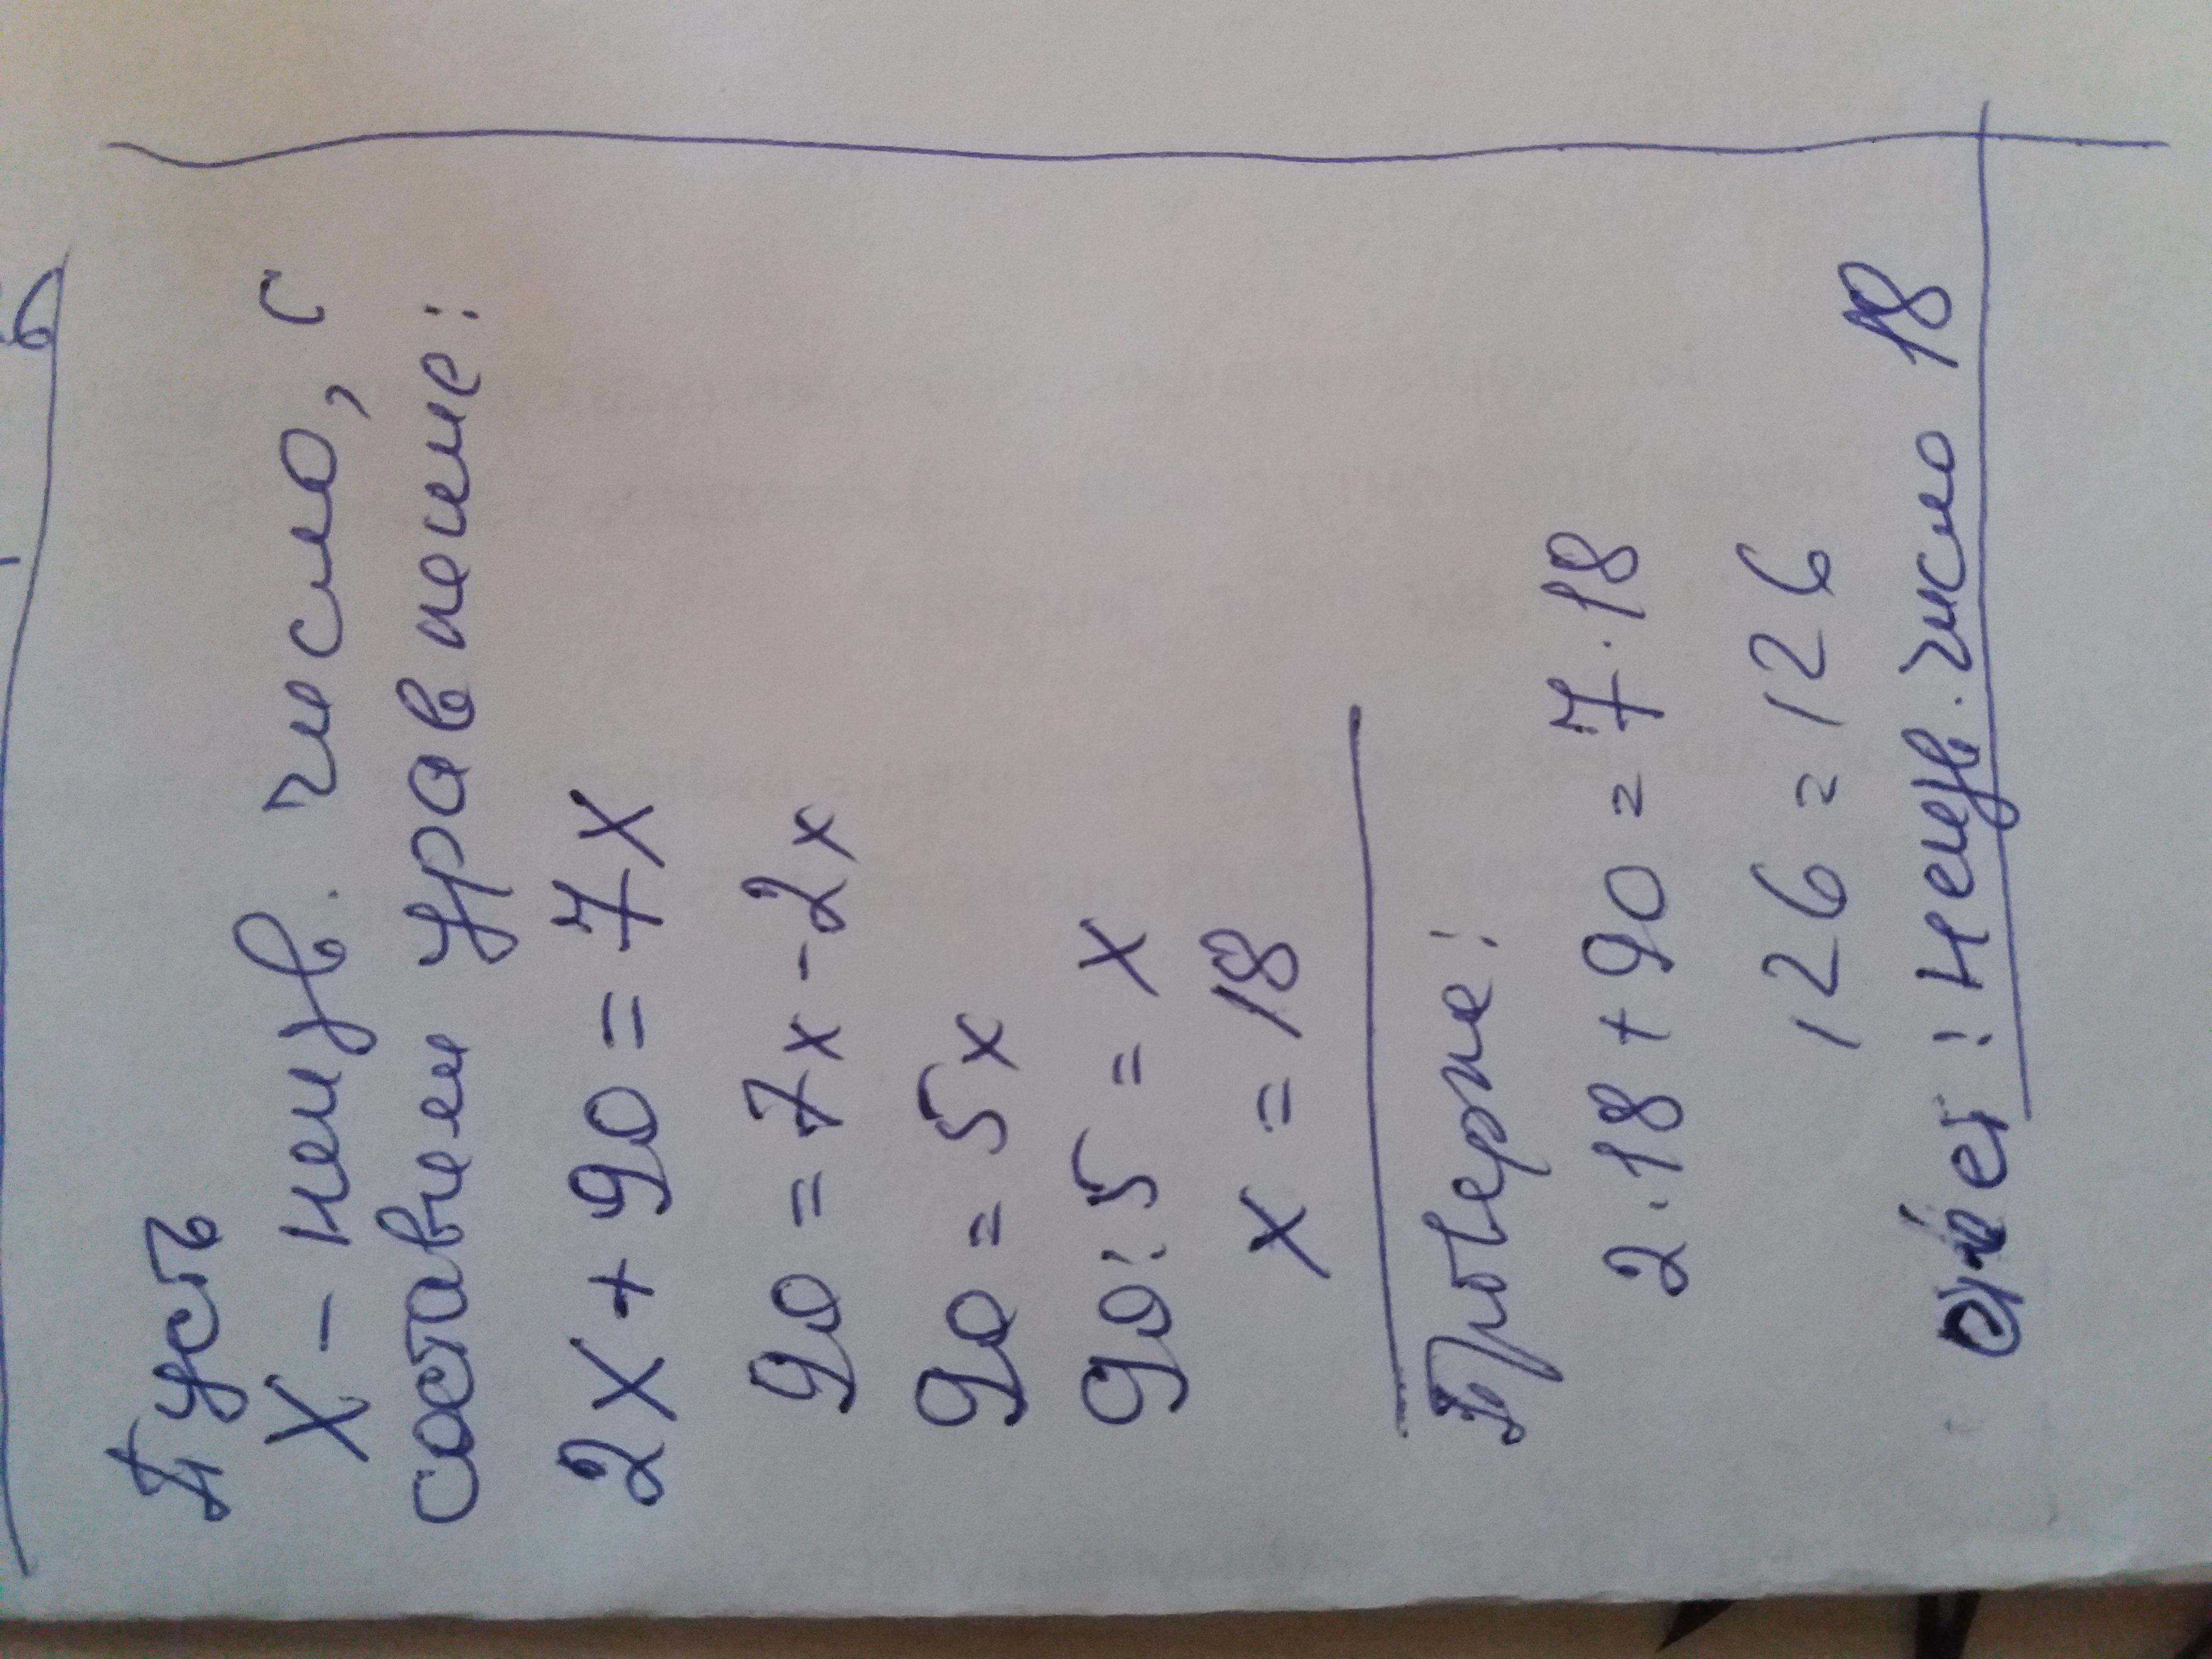 Пусть
X - неизв. число, с
составлен уравнение:
2X + 90 = 7X
90 = 7x - 2x
90 = 5x
90 : 5 = x
x = 18
Проверке:
2 · 18 + 90 = 7 · 18
126 = 126
ответ: неизв. число 18